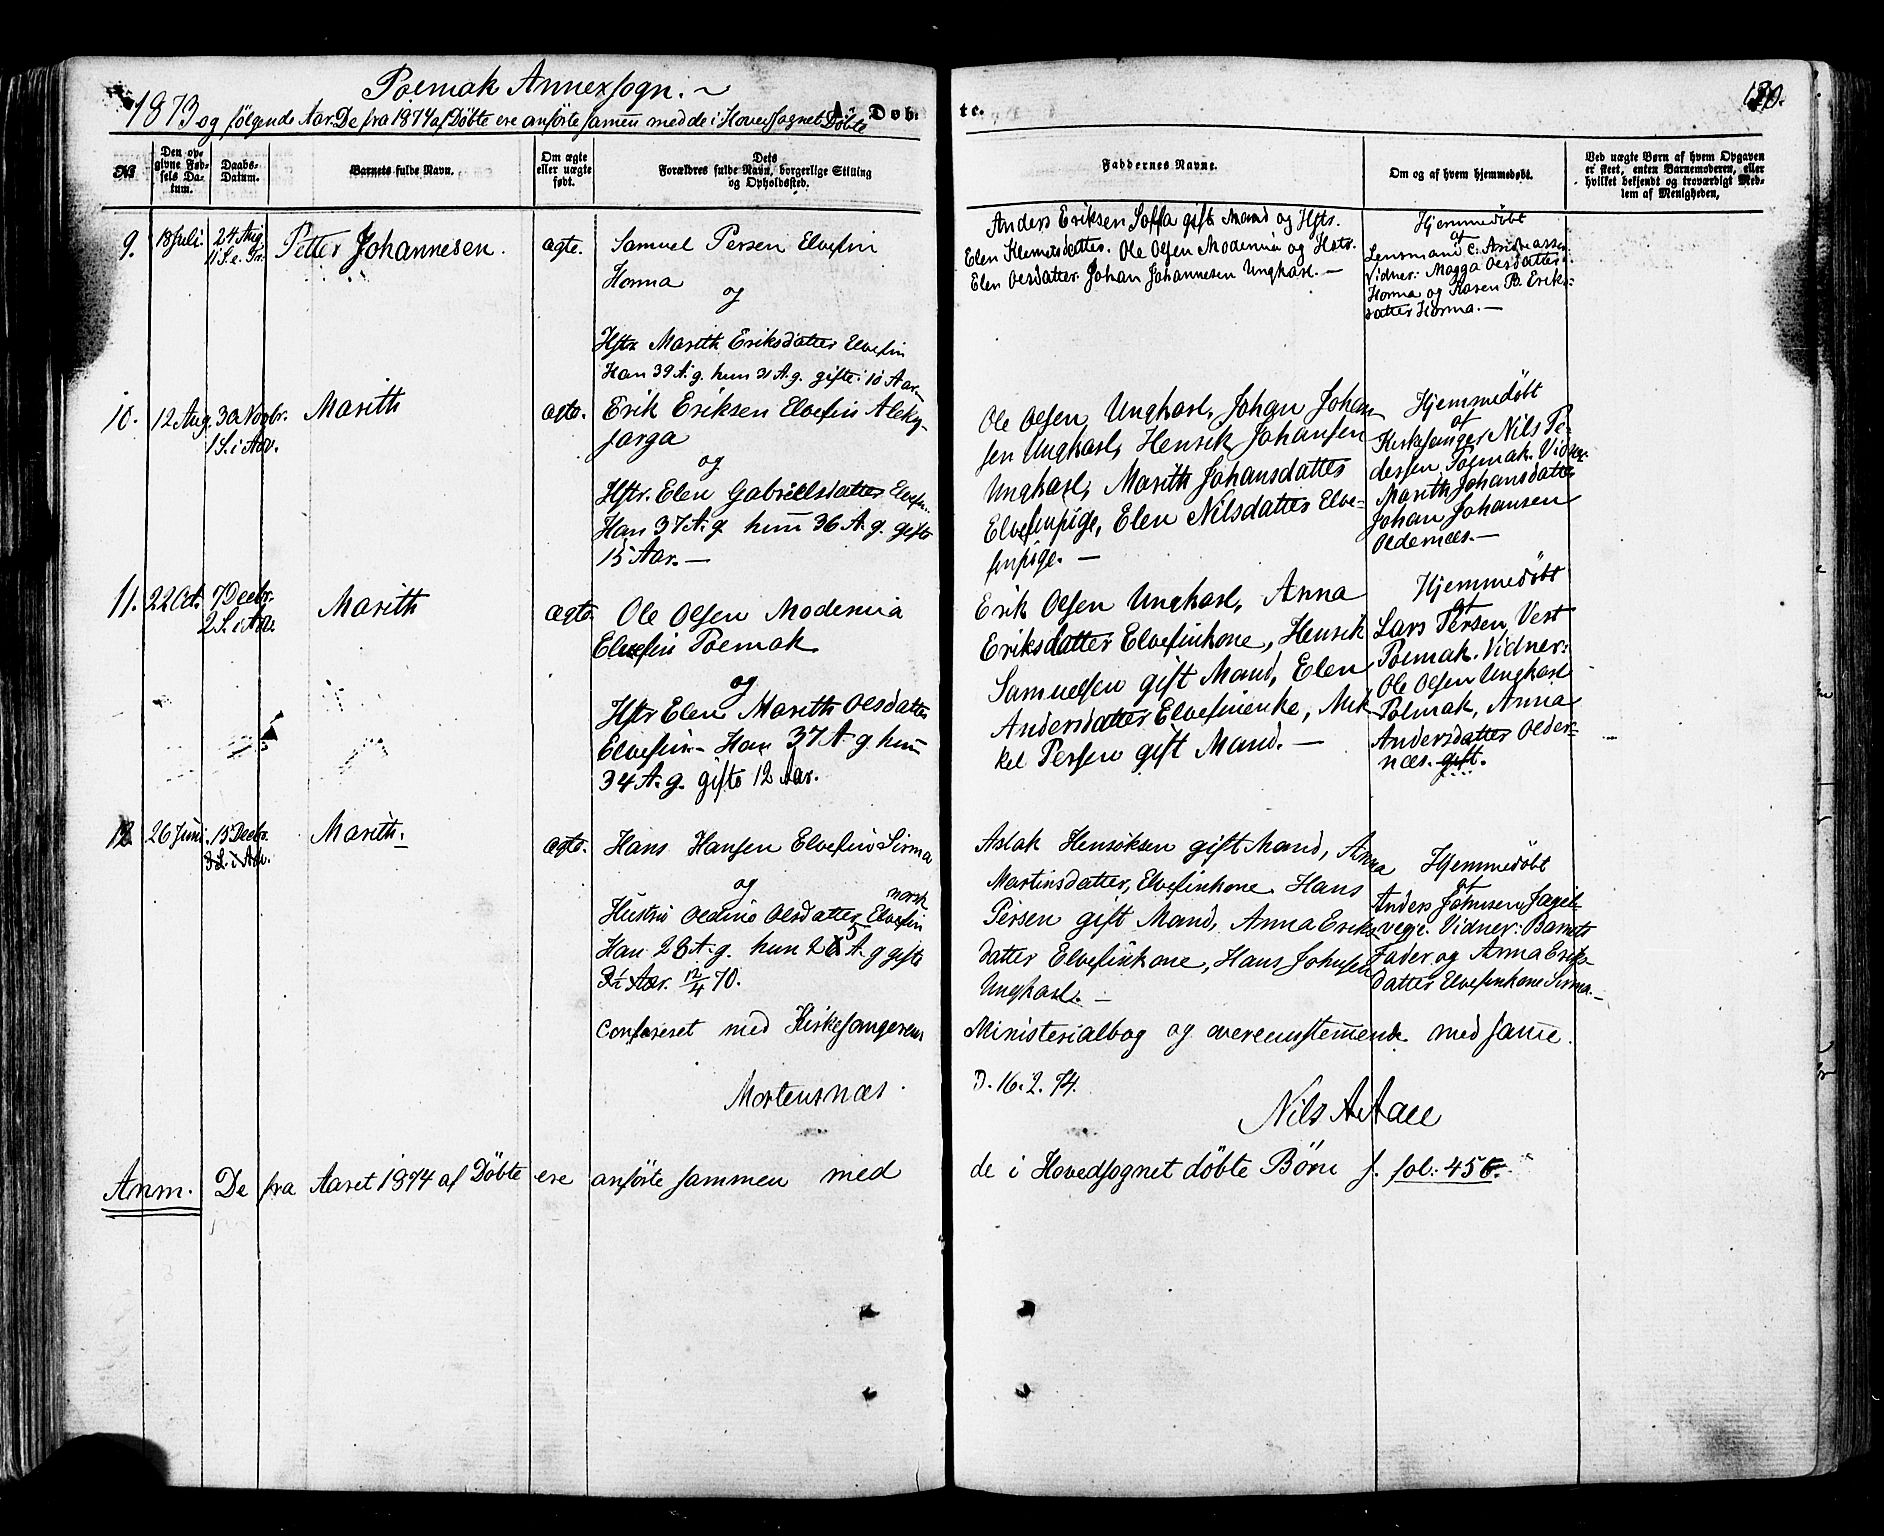 Polmak Annexsogn. ~
1873 og følgende Aar. De fra 1874 af Døbte ere anførte sammen med de i Hovedsognet Døbte
A. Døb
te.
130.
No
Den op-
givne Fød-
sels Da-
tum.
Daabs-
Datum.
Barnets fulde Navn.
Om ægte
eller uægte
født.
Dets
Forældres fulde Navn, borgerlige Stilling
og Opholdssted.
Faddernes Navne.
Om og af hvem hjemmedøbt.
Ved uægte Børn af hvem Opgaven
er skeet, enten Barnemoderen, eller
hvilket bekjendt og troværdigt Med-
lem af Menigheden,
9.
18 Juli.
24 Aug.
11 S. e. Tr.
Petter Johannesen.
ægte.
Samuel Persen Elvefin
Horma
og
Hstr Marith Eriksdatter Elvefin
Han 39 A. g. hun 31 A. g. gifte i 10 Aar.
Anders Eriksen Soffa gift Mand og Hstr.
Elen Klemetsdatter. Ole Olsen Modemia og Hstr.
Elen Olsdatter. Johan Johannesen Ungkarl. —
Hjemmedøbt
af
Lensmand C. Andreassen.
Vidner: Magga Olsdatter
Horma og Karen B. Eriks-
datter Horma. —
10.
12 Aug.
30 Novbr.
1 S. i Adv.
Marith
ægte.
Erik Eriksen Elvefin Aleky-
jarga
og
Hstr. Elen Gabrielsdatter Elvefin.
Han 37 A. g. hun 36 A. g. gifte
15 Aar. —
Ole Olsen Ungkarl, Johan Johan-
sen Ungkarl, Henrik Johansen
Ungkarl, Marith Johansdatter
Elvefinpige, Elen Nilsdatter Elve-
finpige. —
Hjemmedøbt
af
Kirkesanger Nils Pe-
dersen Polmak. Vidner:
Marith Johansdatter
Johan Johansen
Oldernæs. —
11.
22 Oct.
7 Decbr.
2 S. i Adv.
Marith
ægte.
Ole Olsen Modemia
Elvefin Polmak
og
Hstr Elen Marith Olsdatter
Elvefin — Han 37 A. g hun
34 A. g. gifte 12 Aar.
Erik Olsen Ungkarl, Anna
Eriksdatter Elvefinkone, Henrik
Samuelsen gift Mand, Elen
Andersdatter Elvefinenke, Mik-
kel Persen gift Mand. —
Hjemmedøbt
af
Lars Persen, Vest
Polmak. Vidner:
Ole Olsen Ungkarl
Polmak, Anna
Andersdatter Older-
næs. gift.
12.
26 Juni.
15 Decbr.
3 S. i Adv.
Marith.
ægte.
Hans Hansen Elvefin Sirma
og
norsk
Hustru Oldine Olsdatter Elvefin
Han 28 A. g. hun 25 A. g gifte
12/4 70.
Aslak Henriksen gift Mand, Anna
Martinsdatter, Elvefinkone. Hans
Persen gift Mand, Anna Eriks-
datter Elvefinkone, Hans Johnsen
Ungkarl. —
Hjemmedøbt
af
Anders Johnsen,
Vidner: Barnets
Fader og Anna Eriks-
datter Elvefinkone Sirma. —
Confereret med Kirkesangerens
Ministerialbog og overensstemmende med samme.
Mortensnæs.
D. 16. 2. 74.
Nils A Aall
Anm. De fra Aaret 1874 af Døbte ere anførte sammen med
de i Hovedsognet døbte Børn f. fol: 456.